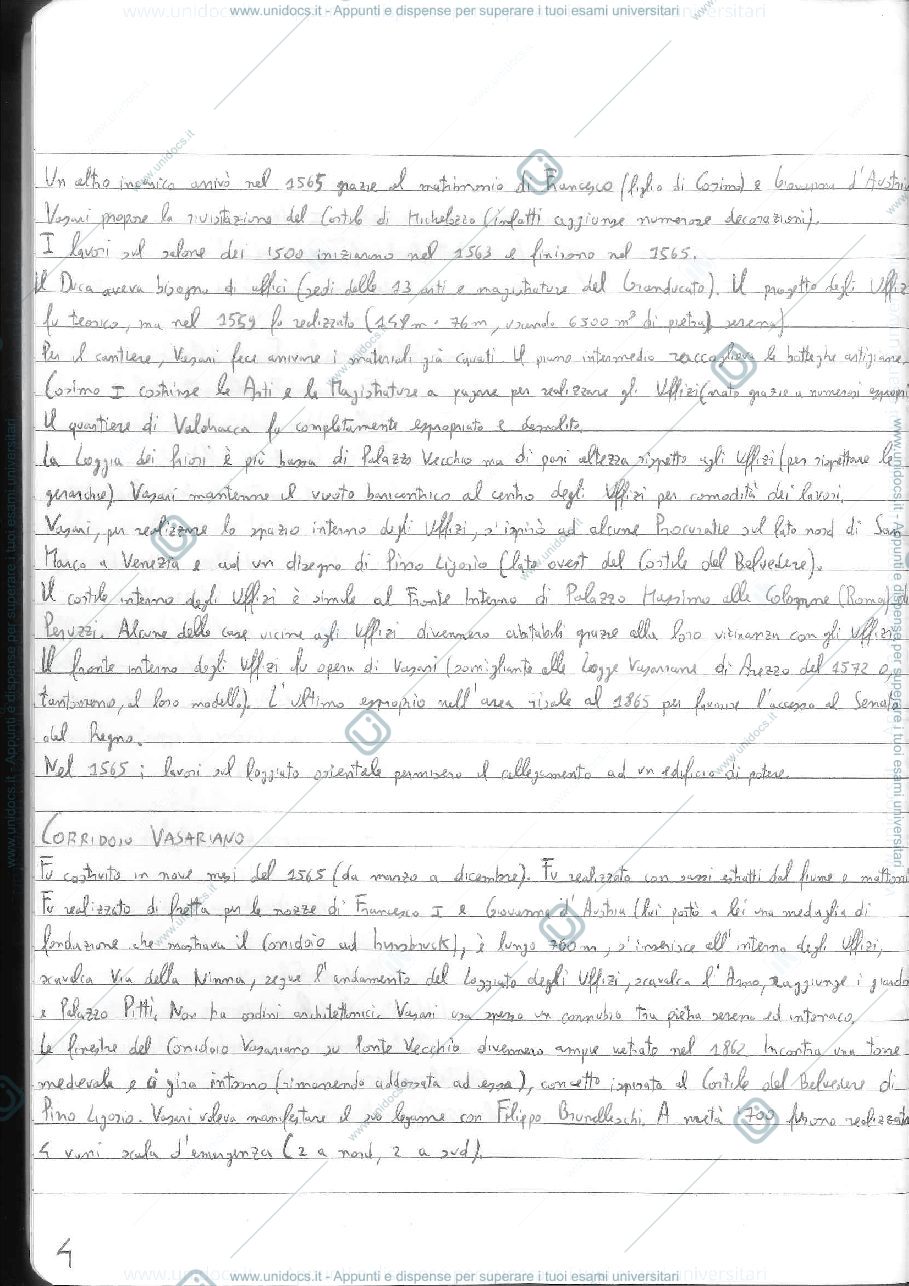 www.unidocs.it - Appunti e dispense per superare i tuoi esami universitari
Un altro incarico arrivò nel 1565 grazie al matrimonio di Francesco (figlio di Cosimo) e Giovanna d'Austria
Vasari propone la rivisitazione del Cortile di Michelozzo (infatti aggiunge numerose decorazioni).
I lavori sul salone dei '500 iniziarono nel 1563 e finirono nel 1565.
Il Duca aveva bisogno di uffici (sedi delle 13 arti e magistrature del Granducato). Il progetto degli Uffizi
fu teorico, ma nel 1559 fu realizzato (149m · 76m, usando 6300 m³ di pietra serena)
Per il cantiere, Vasari fece arrivare i materiali già cavati. Il piano intermedio raccoglieva le botteghe artigiane.
Cosimo I costrinse le Arti e le Magistrature a pagare per realizzare gli Uffizi (nato grazie a numerosi espropri
Il quartiere di Valdracca fu completamente espropriato e demolito.
La Loggia dei Priori è più bassa di Palazzo Vecchio ma di pari altezza rispetto agli Uffizi (per rispettare le
gerarchie). Vasari mantenne il vuoto baricentrico al centro degli Uffizi per comodità dei lavori.
Vasari, per realizzare lo spazio interno degli Uffizi, s'ispirò ad alcune Procuratie sul lato nord di San
Marco a Venezia e ad un disegno di Pirro Ligorio (lato ovest del Cortile del Belvedere).
Il cortile interno degli Uffizi è simile al Fronte Interno di Palazzo Massimo alle Colonne (Roma) di
Peruzzi. Alcune delle case vicine agli Uffizi divennero abitabili grazie alla loro vicinanza con gli Uffizi.
Il fronte interno degli Uffizi fu opera di Vasari (somigliante alle Logge Vasariane di Arezzo del 1572 o,
tantomeno, al loro modello). L'ultimo esproprio nell'area risale al 1865 per favorire l'accesso al Senato
del Regno.
Nel 1565 i lavori sul loggiato orientale permisero il collegamento ad un edificio di potere.
CORRIDOIO VASARIANO
Fu costruito in nove mesi del 1565 (da marzo a dicembre). Fu realizzato con sassi estratti dal fiume e mattoni
Fu realizzato di fretta per le nozze di Francesco I e Giovanna d'Austria (lui portò a lei una medaglia di
fondazione che mostrava il Corridoio ad Innsbruck), è lungo 760m, s'inserisce all'interno degli Uffizi,
scavalca Via della Ninna, segue l'andamento del Loggiato degli Uffizi, scavalca l'Arno, raggiunge i giardi
e Palazzo Pitti. Non ha ordini architettonici. Vasari usa spesso un connubio tra pietra serena ed intonaco.
Le finestre del Corridoio Vasariano su Ponte Vecchio divennero ampie vetrate nel 1862. Incontra una torre
medievale e ci gira intorno (rimanendo addossata ad essa), concetto ispirato al Cortile del Belvedere di
Pirro Ligorio. Vasari voleva manifestare il suo legame con Filippo Brunelleschi. A metà '700 furono realizzati
4 vani scala d'emergenza (2 a nord, 2 a sud).
4
www.unidocs.it - Appunti e dispense per superare i tuoi esami universitari